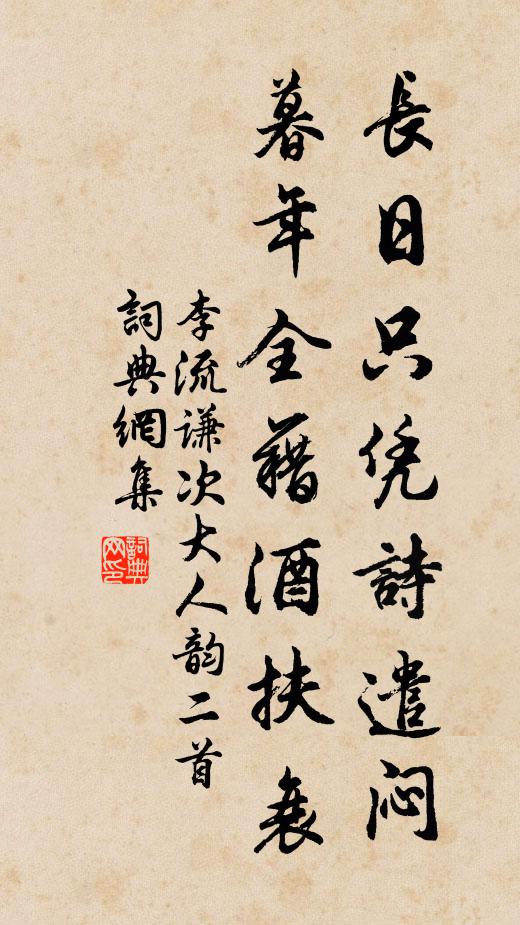 長日只凭詩遣闷
暮年全藉酒扶衰
李流谦次大人韵二首
詞典網集
詞典网印